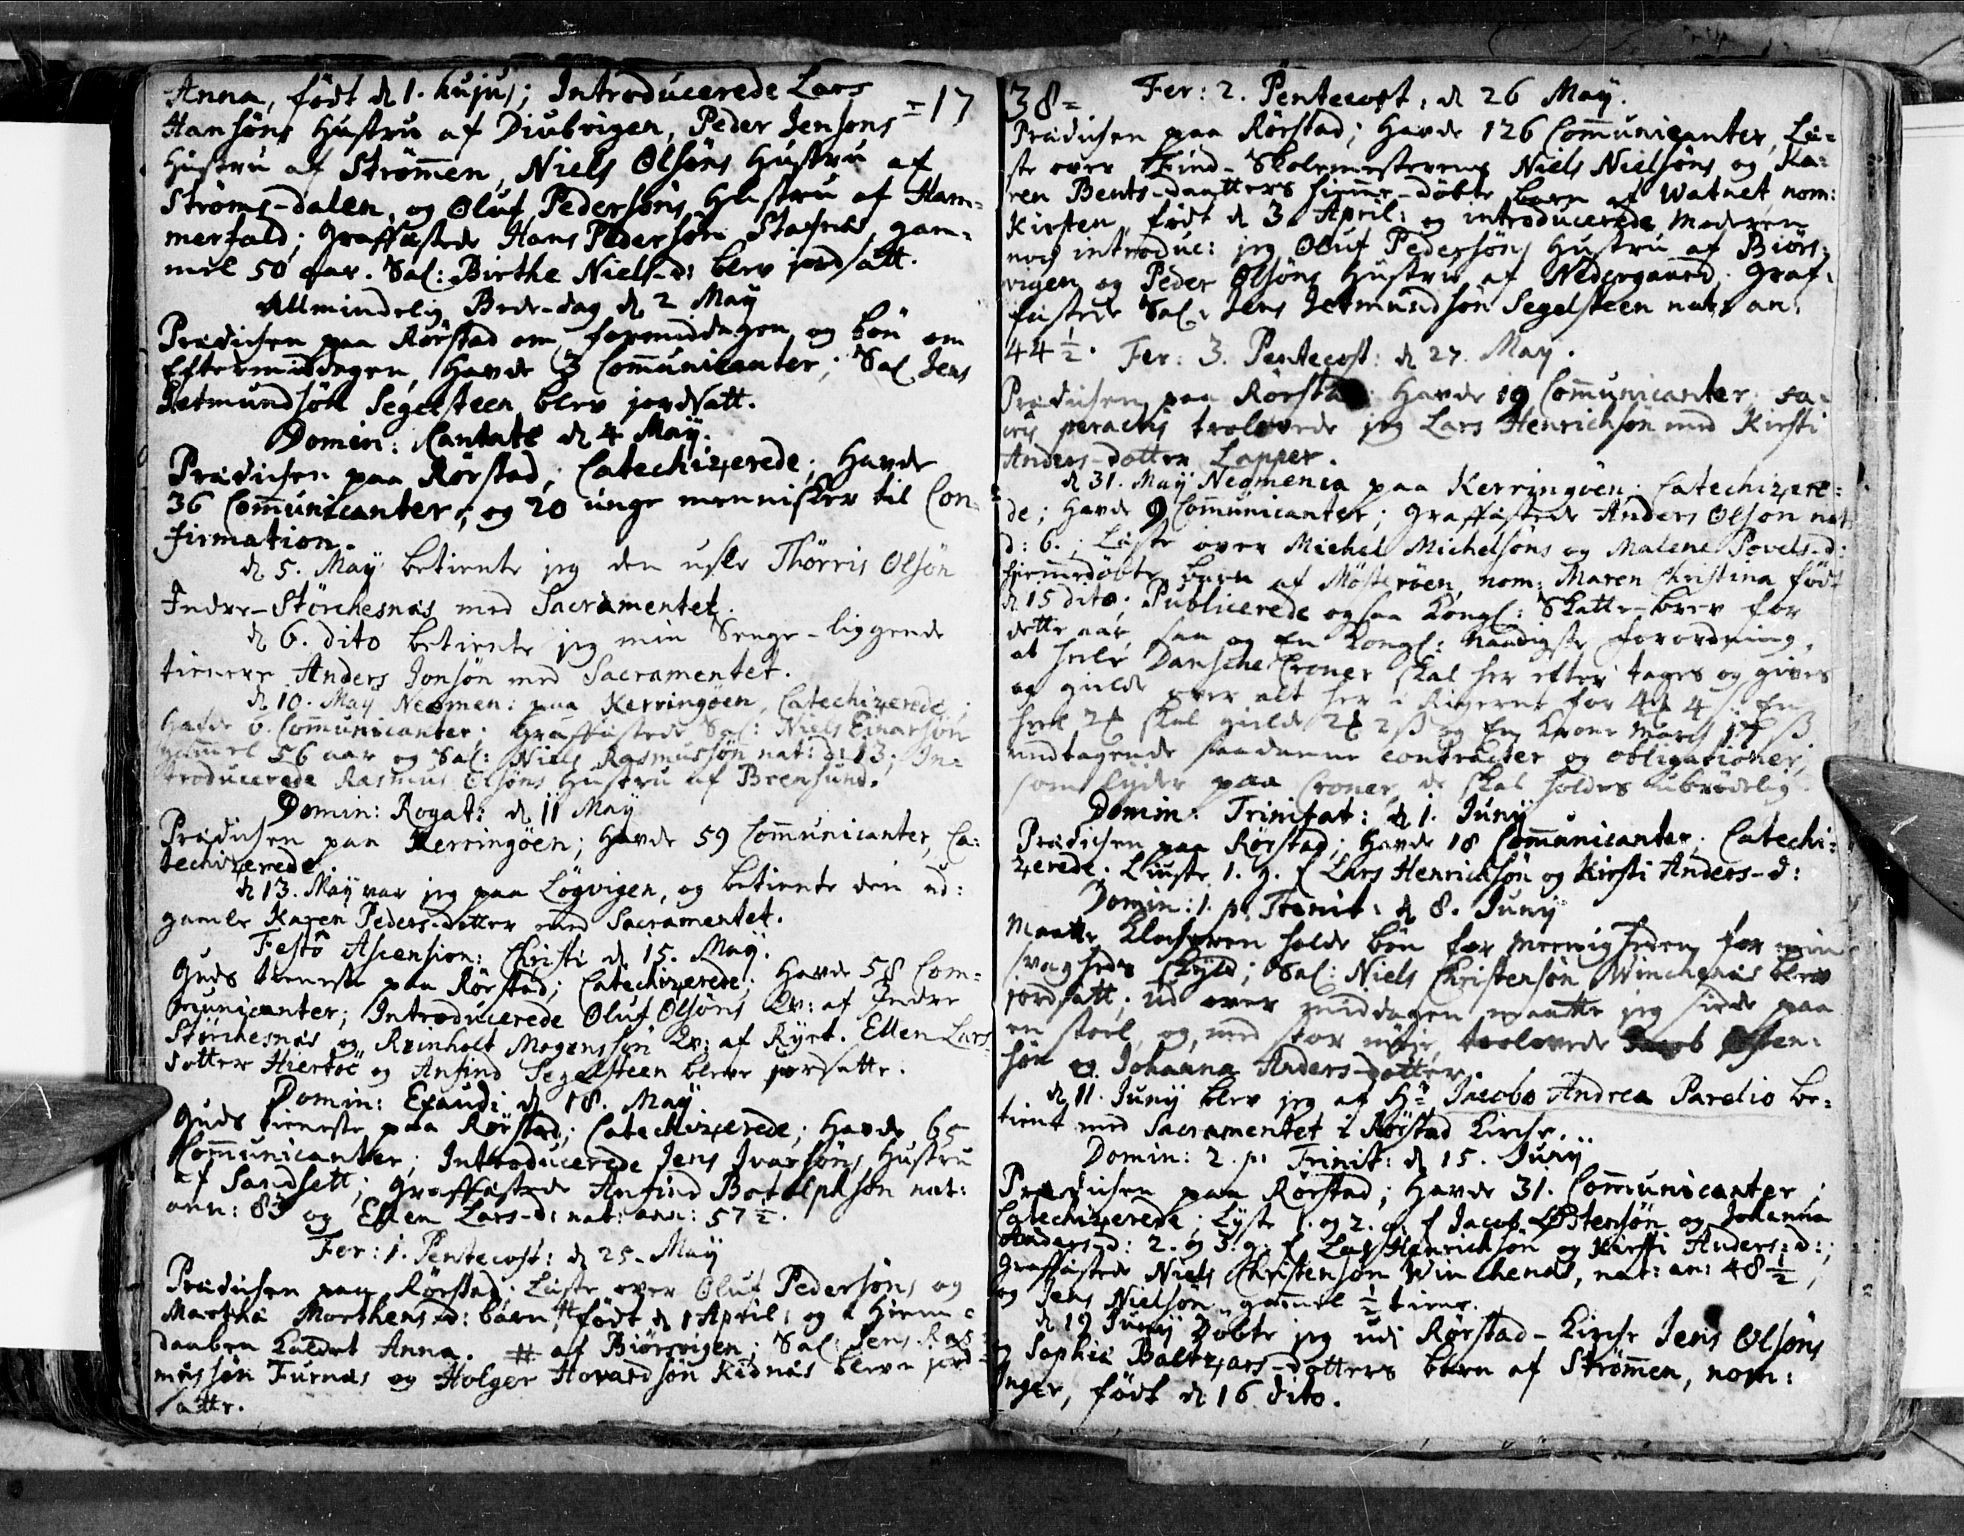 Anna, født d 1. hujus; Introducerede Lars
=17
Hansøns Hustru af Diubvigen, Peder Jensøns
Hustru af Strømmen, Niels Olsøns Hustru af
Strøms-dalen, og Oluf Pedersøns Hustru af Ham-
merfald; Graffæstede Hans Pedersøn Stafnæs, gam-
mel 50 aar. Sal: Birthe Niels-d: blev jordsatt.
Allmindelig Bede-dag d 2 May
Prædichen paa Rørstad om formiddagen og bøn om
Eftermiddagen, Havde 3 Communicanter; Sal Jens
Jetmundsøn Segelsteen blev jordsatt.
Domin: Cantate d 4 May.
Prædichen paa Rørstad; Catechizerede; Havde
36 Communicanter; og 20 unge mennisker til Con-
firmation.
d 5. May betiente jeg den usle Thørris Olsøn
Indre-Størchesnæs med Sacramentet.
d 6. dito betiente jeg min Senge-liggende
tienere Anders Jonsøn med Sacramentet.
d 10. May Neomen: paa Kerringøen, Catechizerede;
Hafde 6. Communicanter; Graffæstede Sal: Niels Einarsøn
gammel 56 aar og Sal: Niels Rasmussøn nat: d: 13; In-
troducerede Rasmus Olsøns Hustru af Brensund.
Domin: Rogat: d 11 May
Prædichen paa Kerringøen; Havde 59 Communicanter, Ca-
techizerede.
d 13. May var jeg paa Løgvigen, og betiente den ud-
gamle Karen Peders-dotter med Sacramentet.
Festô Ascension: Christi d 15. May.
Guds tieneste paa Rørstad; Catechizerede; Havde 58 Com-
municanter; Introducerede Oluf Olsøns Qv: af Indre
Størchesnæs og Reinholt Mogenssøn Qv: af Ryet. Ellen Lars-
dotter Hiertøe og Anfind Segelsteen bleve jordsatte.
Domin: Exaudi d 18. May
Guds tieneste paa Rørstad; Catechizerede; Havde 65
Communicanter; Introducerede Jens Ivarsøns Hustru
af Sandsett; Graffæstede Anfind Botolphsøn nat:
ann: 83 og Ellen Lars-d: nat: ann: 57½.
Fer: 1. Pentecost: d 25. May
Prædichen paa Rørstad; Læste over Oluf Pedersøns og
Martha Morthens-d: barn, # født d 1 April: og i Hiemme-
daaben kaldet Anna. # af Biørsvigen; Sal: Jens Ras-
mussøn Furnæs og Holger Hovardsøn Kidnæs bleve jord-
satte.
38=
Fer: 2. Pentecost: d 26 May.
Prædichen paa Rørstad; Havde 126 Communicanter, Læ-
ste over Find-Skolemesterens Niels Nielsøns og Ka-
ren Bents-daatters hiemme-døbte barn af Watnet, nom:
Kirsten, født d 3. April: og introducerede Moderen
nock introduc: jeg Oluf Pedersøns Hustru af Biørs-
vigen og Peder Olsøns Hustru af Nedergaard; Graf-
fæstede Sal: Jens Jetmundsøn Segelsteen nat: an:
44½.
Fer: 3. Pentecost: d 27. May.
Prædichen paa Rørstad Havde 19 Communicanter; sa-
cris peractis trolovede jeg Lars Henrichsøn med Kirsti
Anders-dotter Lapper.
d 31. May Neomenia paa Kerringøen; Catechizere-
de; Havde 9 Communicanter; Graffæstede Anders Olsøn nat:
d: 6.; Læste over Michel Michelsøns og Malene Povels-d:
hiemmedøbte barn af Møsterøen, nom: Maren Christina født
d 15 dito. Publicerede ogsaa Kongl: Skatte-brev for
dette aar, saa og En Kongl: Naadigste forordning,
at heele Dansche Croner skal her efter tages og gives
og gielde over alt her i Rigerne for 4
undtagende saadanne contracter og obligationer,
som lyder paa Croner, de skal holdes ubrødelig.
Domin: Trinitat: d 1. Juny
Prædichen paa Rørstad; Havde 18 Communicanter; Catechi-
zerede; Liuste 1. g. f Lars Henrichsøn og Kirsti Anders-d:
Domin: 1. p. Trinit: d 8. Juny
Maatte Klocheren holde bøn for Meenigheden for min
svagheds skyld; Sal: Niels Christensøn Winchenæs blev
jordsatt; Ud over middagen maatte jeg side paa
en stoel, og, med stor møje, trolovede Jacob Østen-
søn og Johanna Anders-dotter.
d 11. Juny blev jeg af Hr Jacobo Andrea Parelio be-
tient med Sacramentet i Rørstad Kirche.
Domin: 2. p: Trinit: d 15. Juny
Prædichen paa Rørstad; Havde 31. Communicanter;
Catechizerede; Lyste 1. og 2. g. f Jacob Østensøn og Johanna
Anders-d: 2. og 3. g: f Lars Henrichsøn og Kirsti Anders-d:;
Graffæstede Niels Christensøn Winchenæs, nat: an: 48½;
og Jens Nielsøn gammel ½ time.
d 19 Juny Døbte jeg udi Rørstad-Kirche Jens Olsøns
og Saphie Baltzars-dotters barn af Strømmen, nom:
Inger, født d 16 dito.